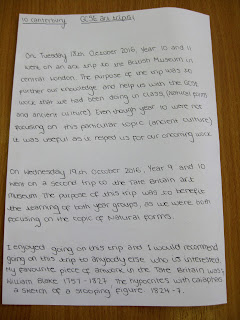 10 Canterbury GCSE art trips!
On Tuesday 18th October 2016, Year 10 and 11
went on an art trip to the British Museum in
central London. The purpose of the trip was to
further our knowledge and help us with the GCSE
work that we had been doing in class (natural form
and ancient culture). Even though year 10 were not
focusing on this particular topic (ancient culture)
it was useful as it helped us for our oncoming work.
On Wednesday 19th October 2016, Year 9 and 10
went on a second trip to the Tate Britain art
museum. The purpose of this trip was to benefit
the learning of both year groups, as we were both
focusing on the topic of Natural forms.
I enjoyed going on this trip and I would recommend
going on this trip to anybody else who is interested.
My favourite piece of artwork in the Tate Britain was
William Blake 1757-1827 The hypocrites with Caiaphas
a sketch of a stooping figure. 1824-7.